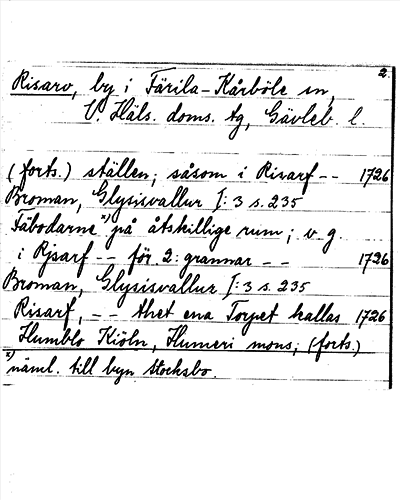 2.
Risarv, by i Färila-Kårböle sn,
V. Häls. doms. tg, Gävleb. l.
(forts.) ställen; såsom i Risarf -- 1726
Broman, Glysisvallur I: 3 s. 235
Fäbodarne x) på åtskillige rum; v. g.
i Rjsarf -- för 2: grannar -- 1726
Broman, Glysisvallur I: 3 s. 235
Risarf, -- thet ena Torpet kallas 1726
Humblo Kiöln, Humeri mons; (forts.)
x) näml. till byn Stocksbo.